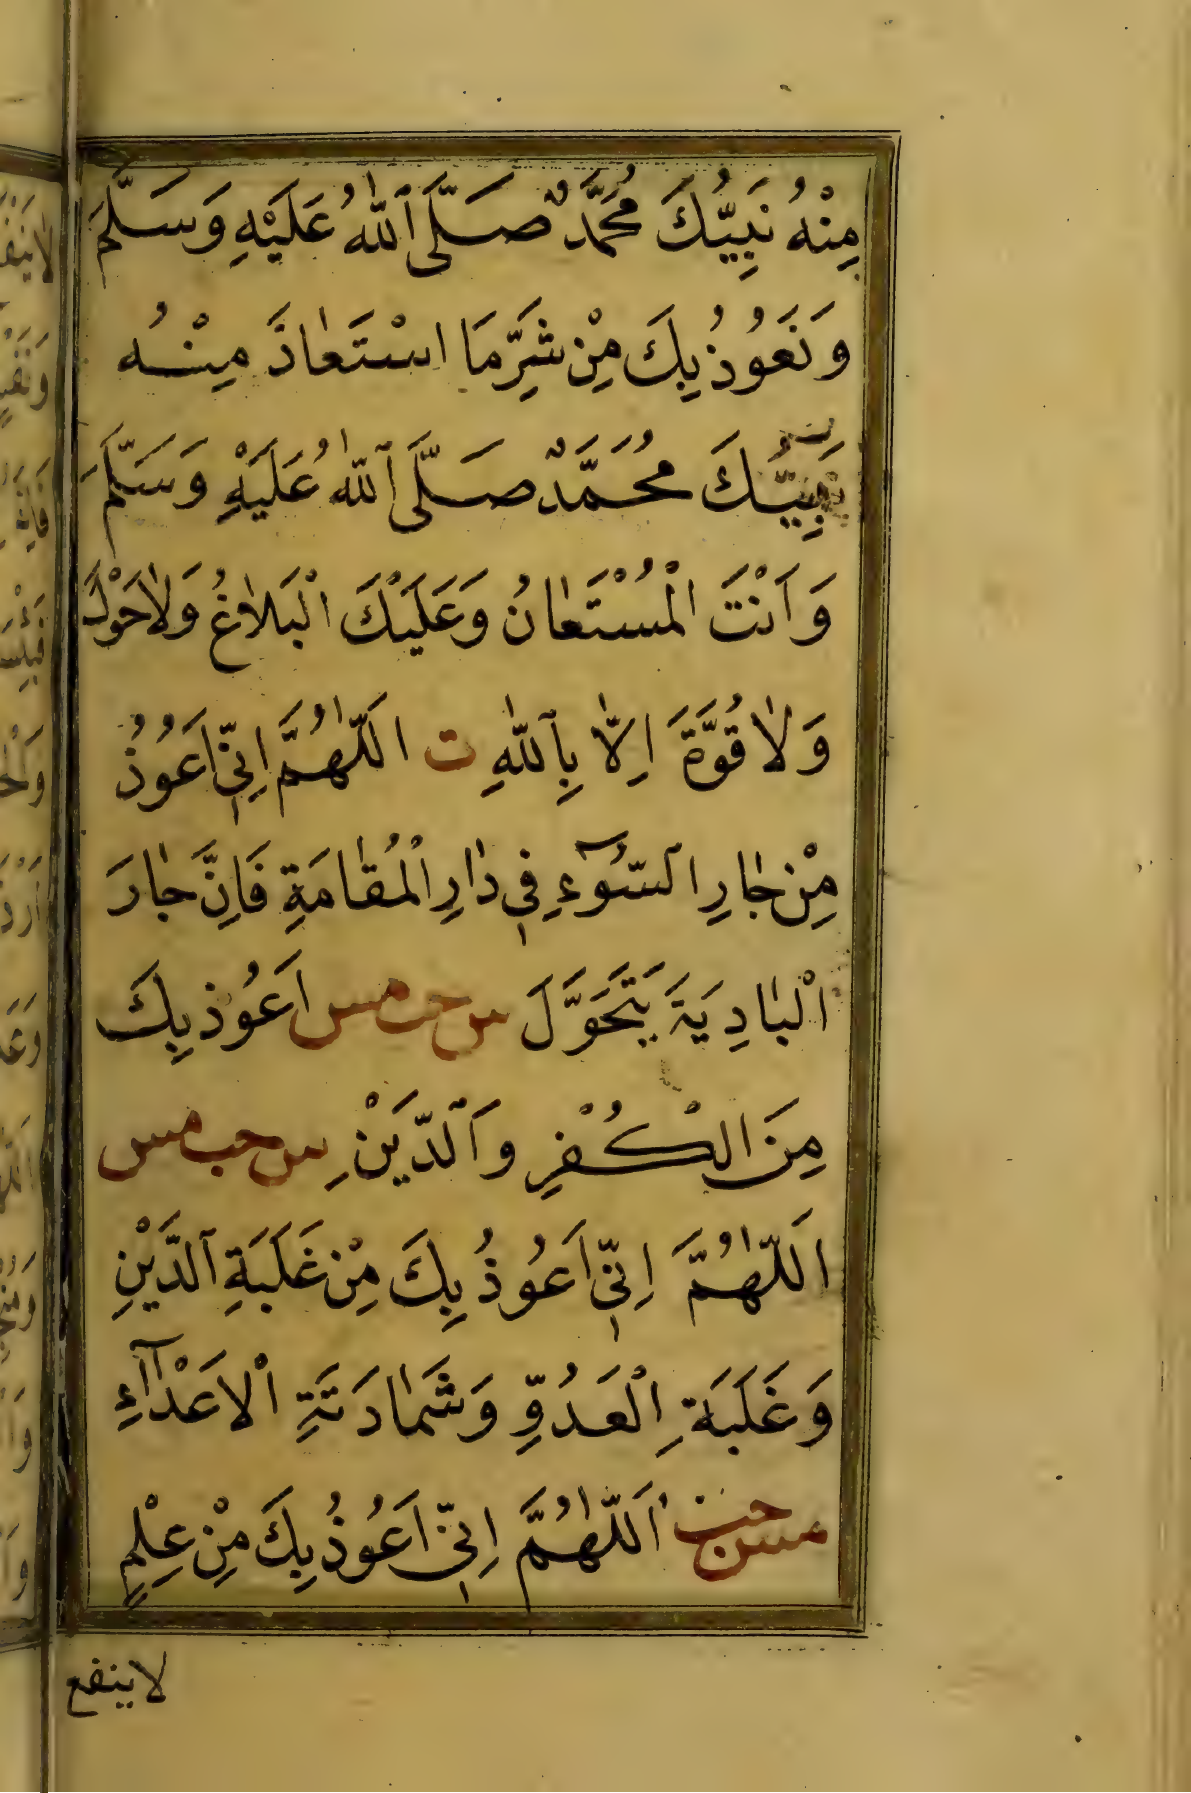 مِنْهُ نَبِيُّكَ مُحَمَّدٌ صَلَّى ٱللّٰهُ عَلَيْهِ وَسَلَّمَ
وَنَعُوذُ بِكَ مِنْ شَرِّ مَا اسْتَعٰاذَ مِنْهُ
نَبِيُّكَ مُحَمَّدٌ صَلَّى ٱللّٰهُ عَلَيْهِ وَسَلَّمَ
وَاَنْتَ الْمُسْتَعٰانُ وَعَلَيْكَ الْبَلٰاغُ وَلٰاحَوْلَ
وَلٰا قُوَّةَ اِلّٰا بِٱللّٰهِ ت اَللّٰهُمَّ اِنّٖي اَعُوذُ
مِنْ جٰارِ السُّوٓءِ فٖي دٰارِ الْمُقٰامَةِ فَاِنَّ جٰارَ
الْبٰادِيَةِ يَتَحَوَّلَ س حب مس اَعُوذُ بِكَ
مِنَ الْكُفْرِ وَٱلدَّيْنِ س حب مس
اَللّٰهُمَّ اِنّٖي اَعُوذُ بِكَ مِنْ غَلَبَةِ ٱلدَّيْنِ
وَغَلَبَةِ الْعَدُوِّ وَشَمٰادَتَةِ الْاَعْدٰٓاءِ
مس حب اَللّٰهُمَّ اِنّٖي اَعُوذُ بِكَ مِنْ عِلْمٍ
لاينفع